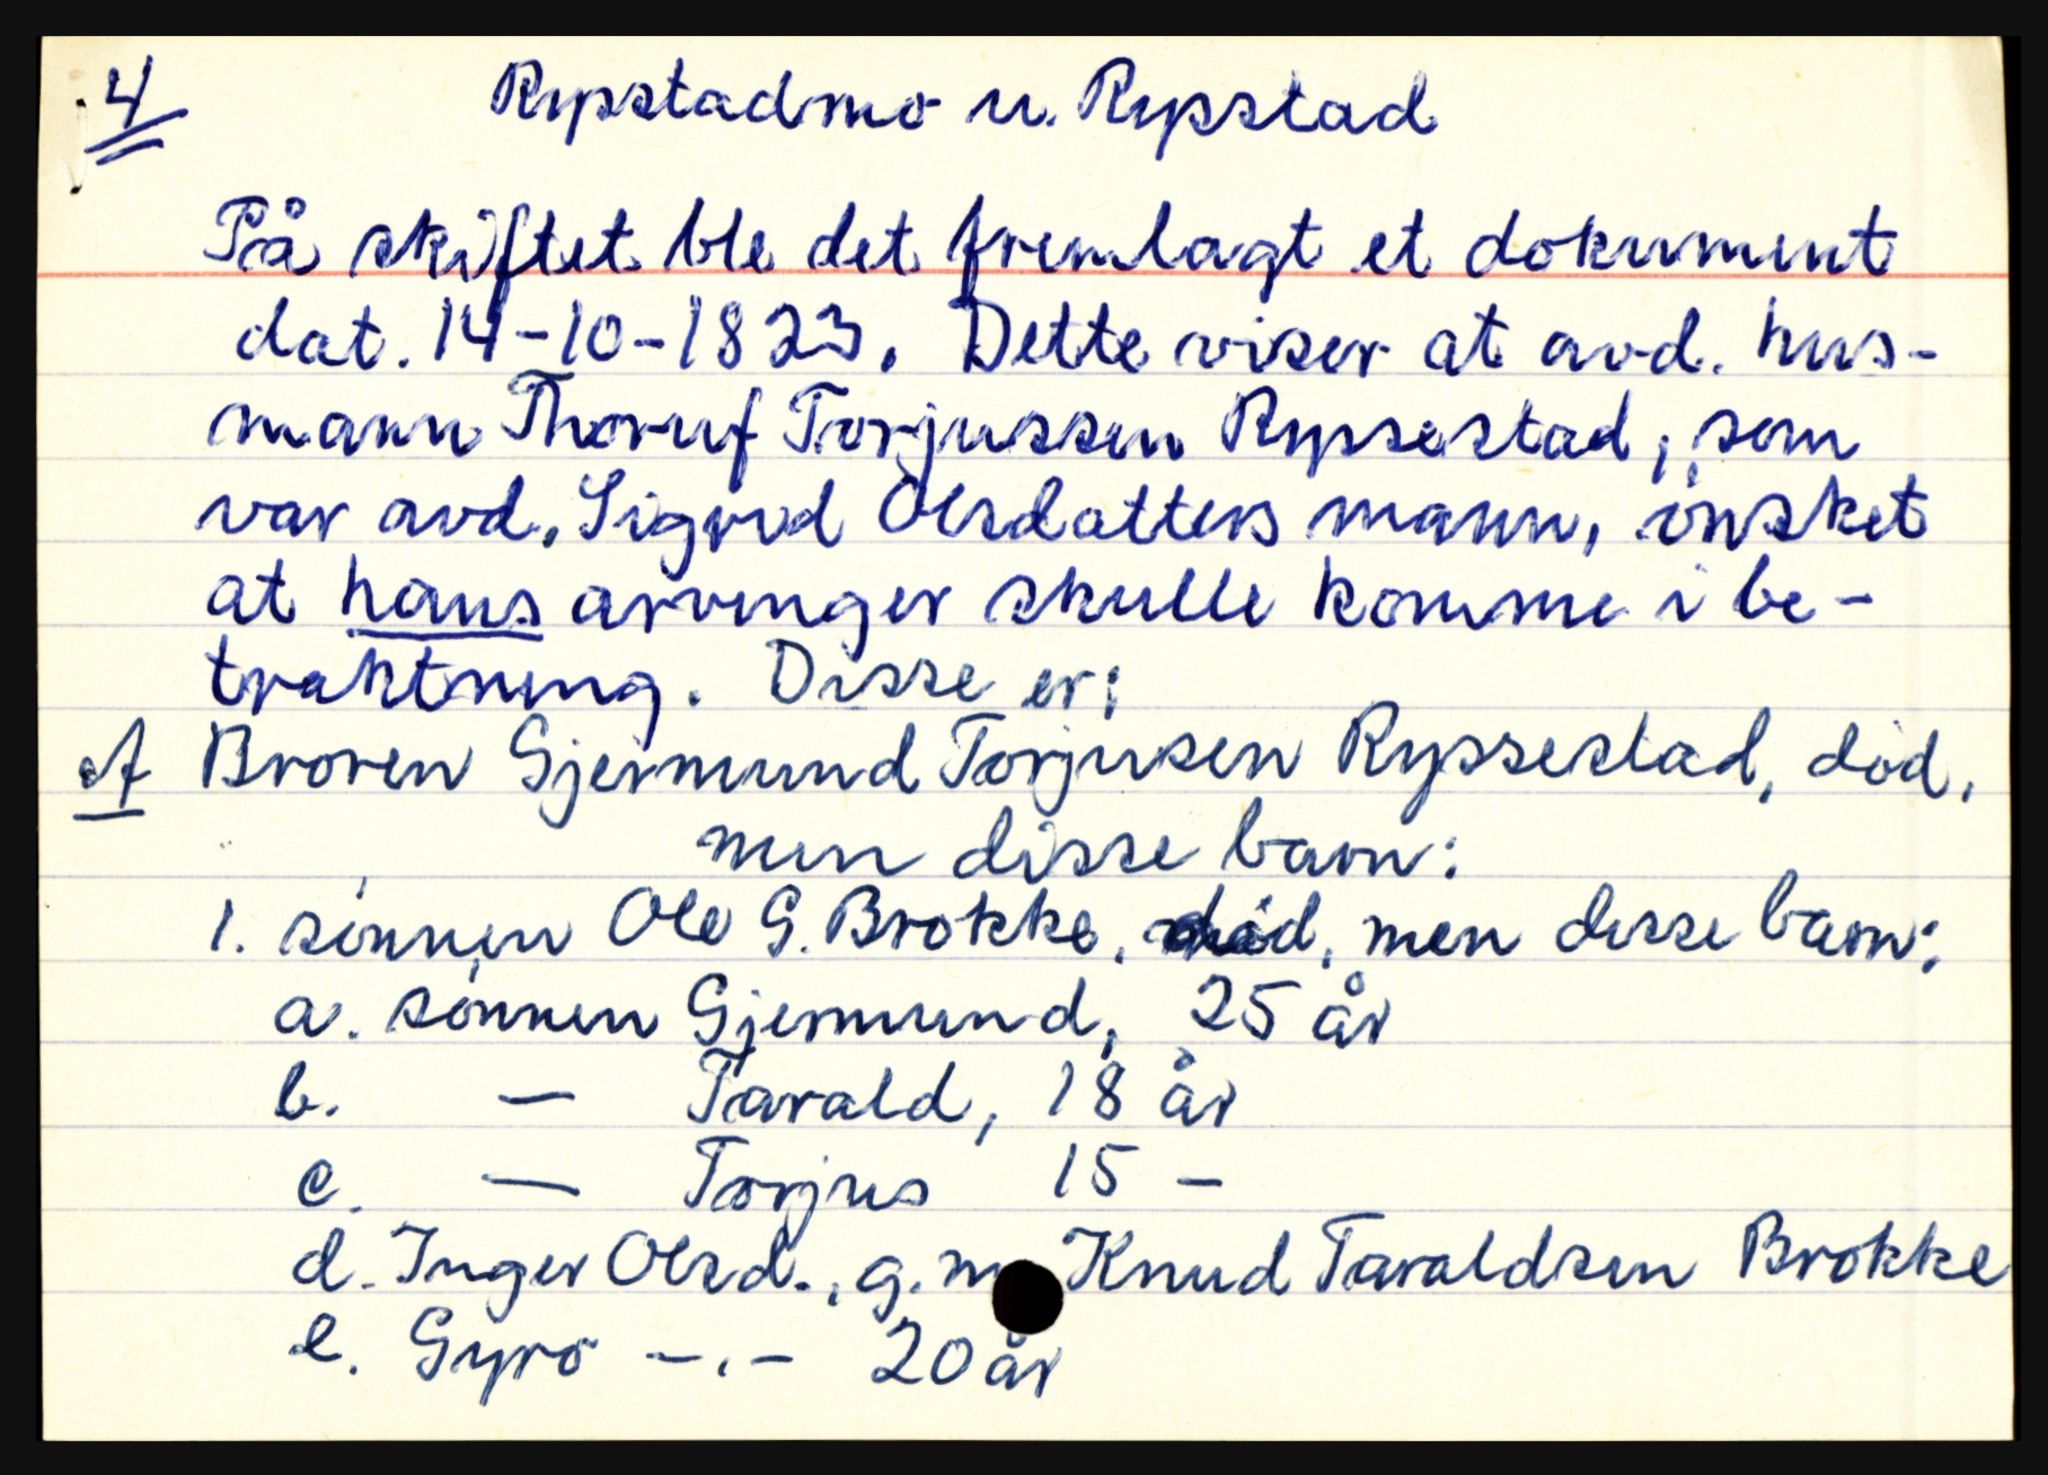 4 Rypstadmo u. Rypstad
På skiftet ble det fremlagt et dokument
dat. 14-10-1823. Dette viser at avd. hus-
mann Thoruf Torjussen Rypsestad, som
var avd. Sigrid Olsdatters mann, ønsket
at hans arvinger skulle komme i be-
traktning. Disse er:
A Broren Gjermund Torjusen Ryssestad, død,
men disse barn:
1. sønnen Ole G. Brokke, død, men disse barn:
a. sønnen Gjermund, 25 år
b. — Tarald, 18 år
c. — Torjus 15 –
d. Inger Olsd., g.m. Knud Taraldsen Brokke
e. Gyro -.- 20 år